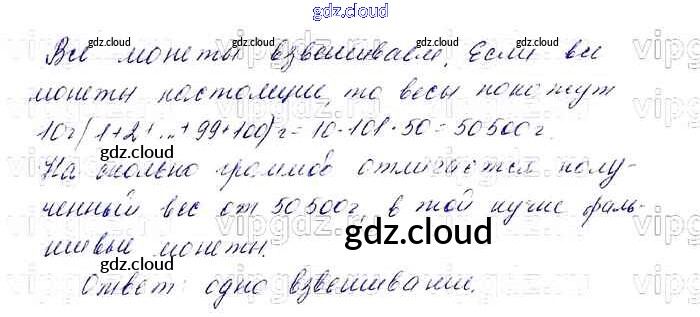 gdz.cloud
Все монеты взвешиваем. Если все
монеты настоящие, то весы покажут
10г(1+2+...+99+100)г = 10·101·50 = 50500г.
На сколько граммов отличается полу-
ченный вес от 50500г, в той куче фаль-
шивые монеты.
Ответ: одно взвешивание.
gdz.cloud
gdz.cloud
gdz.cloud
gdz.cloud
gdz.cloud
gdz.cloud
gdz.cloud
gdz.cloud